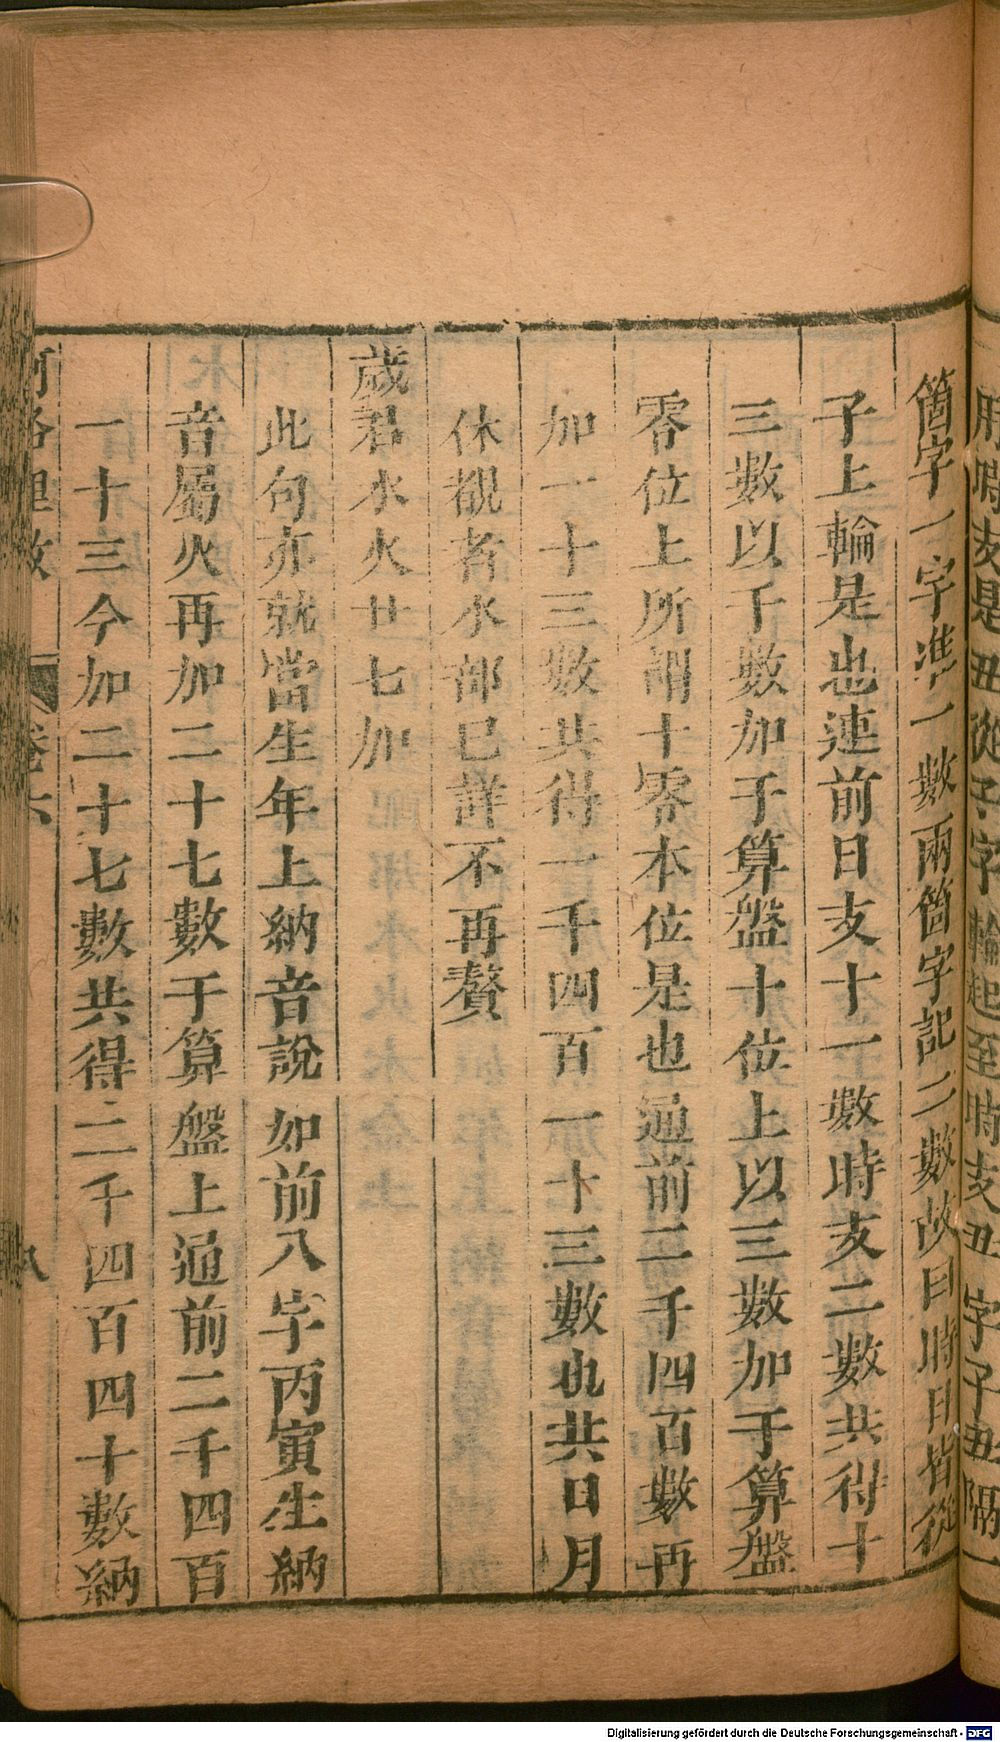 時支是丑從子字輪起至時支丑字子丑隔一
箇字一字準一數兩箇字記二數故曰時日皆從
子上輪是也連前日支十一數時支二數共得十
三數以千數加于算盤十位上以三數加于算盤
零位上所謂十零本位是也通前二千四百數再
加一十三數共得二千四百一十三數也共日月
休覩者水部已詳不再贅
歲君水火廿七加
此句亦就當生年上納音說如前八字丙寅生納
音屬火再加二十七數于算盤上通前二千四百
一十三今加二十七數共得二千四百四十數納
河洛理數
卷六
八
Digitalisierung gefördert durch die Deutsche Forschungsgemeinschaft - DFG